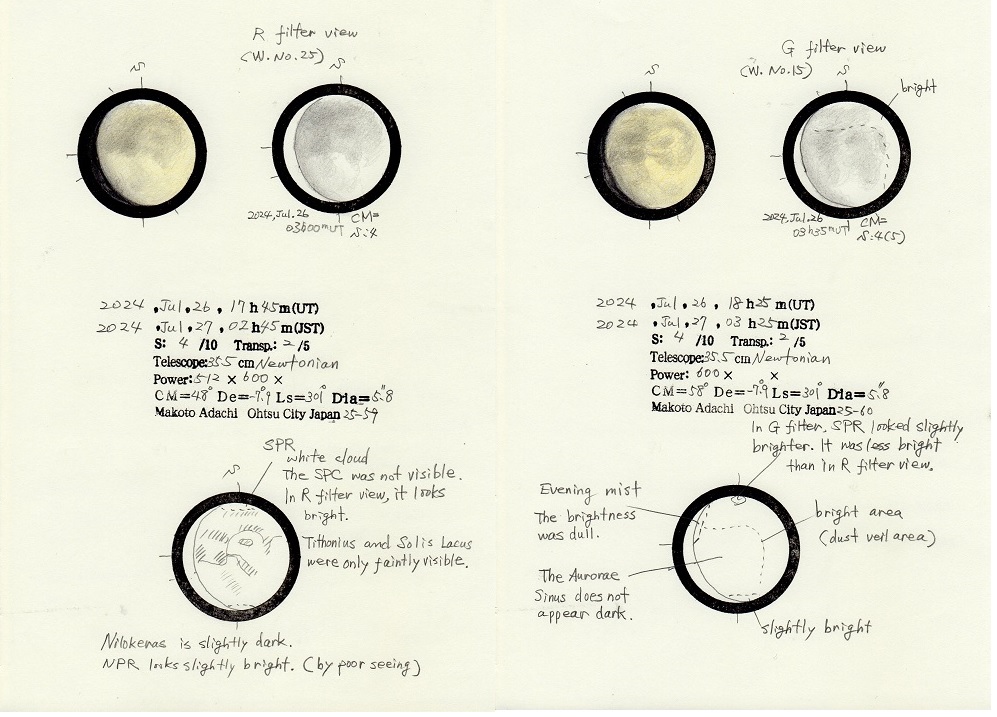 R filter view
(W. No. 25)
S
S
2024, Jul. 26
03h00mUT
CM=
S:4
2024 , Jul. 26 , 17 h 45 m (UT)
2024 , Jul. 27 , 02 h 45 m (JST)
S: 4 /10 Transp.: 2 /5
Telescope: 35.5 cm Newtonian
Power: 512 × 600 ×
CM=48° De=-7.9° Ls=301° Dia=5.8"
Makoto Adachi Ohtsu City Japan 25-59
SPR
white cloud
The SPC was not visible.
In R filter view, it looks
bright.
S
Tithonius and Solis Lacus
were only faintly visible.
Nilokeras is slightly dark.
NPR looks slightly bright. (by poor seeing)
G filter view
(W. No. 15)
S
S
bright
2024, Jul. 26
03h35mUT
CM=
S:4(5)
2024 , Jul. 26 , 18 h 25 m (UT)
2024 , Jul. 27 , 03 h 25 m (JST)
S: 4 /10 Transp.: 2 /5
Telescope: 35.5 cm Newtonian
Power: 600 × ×
CM=58° De=-7.9° Ls=301° Dia=5.8"
Makoto Adachi Ohtsu City Japan 25-60
In G filter, SPR looked slightly
brighter. It was less bright
than in R filter view.
Evening mist
The brightness
was dull.
bright area
(dust veil area)
The Aurorae
Sinus does not
appear dark.
slightly bright